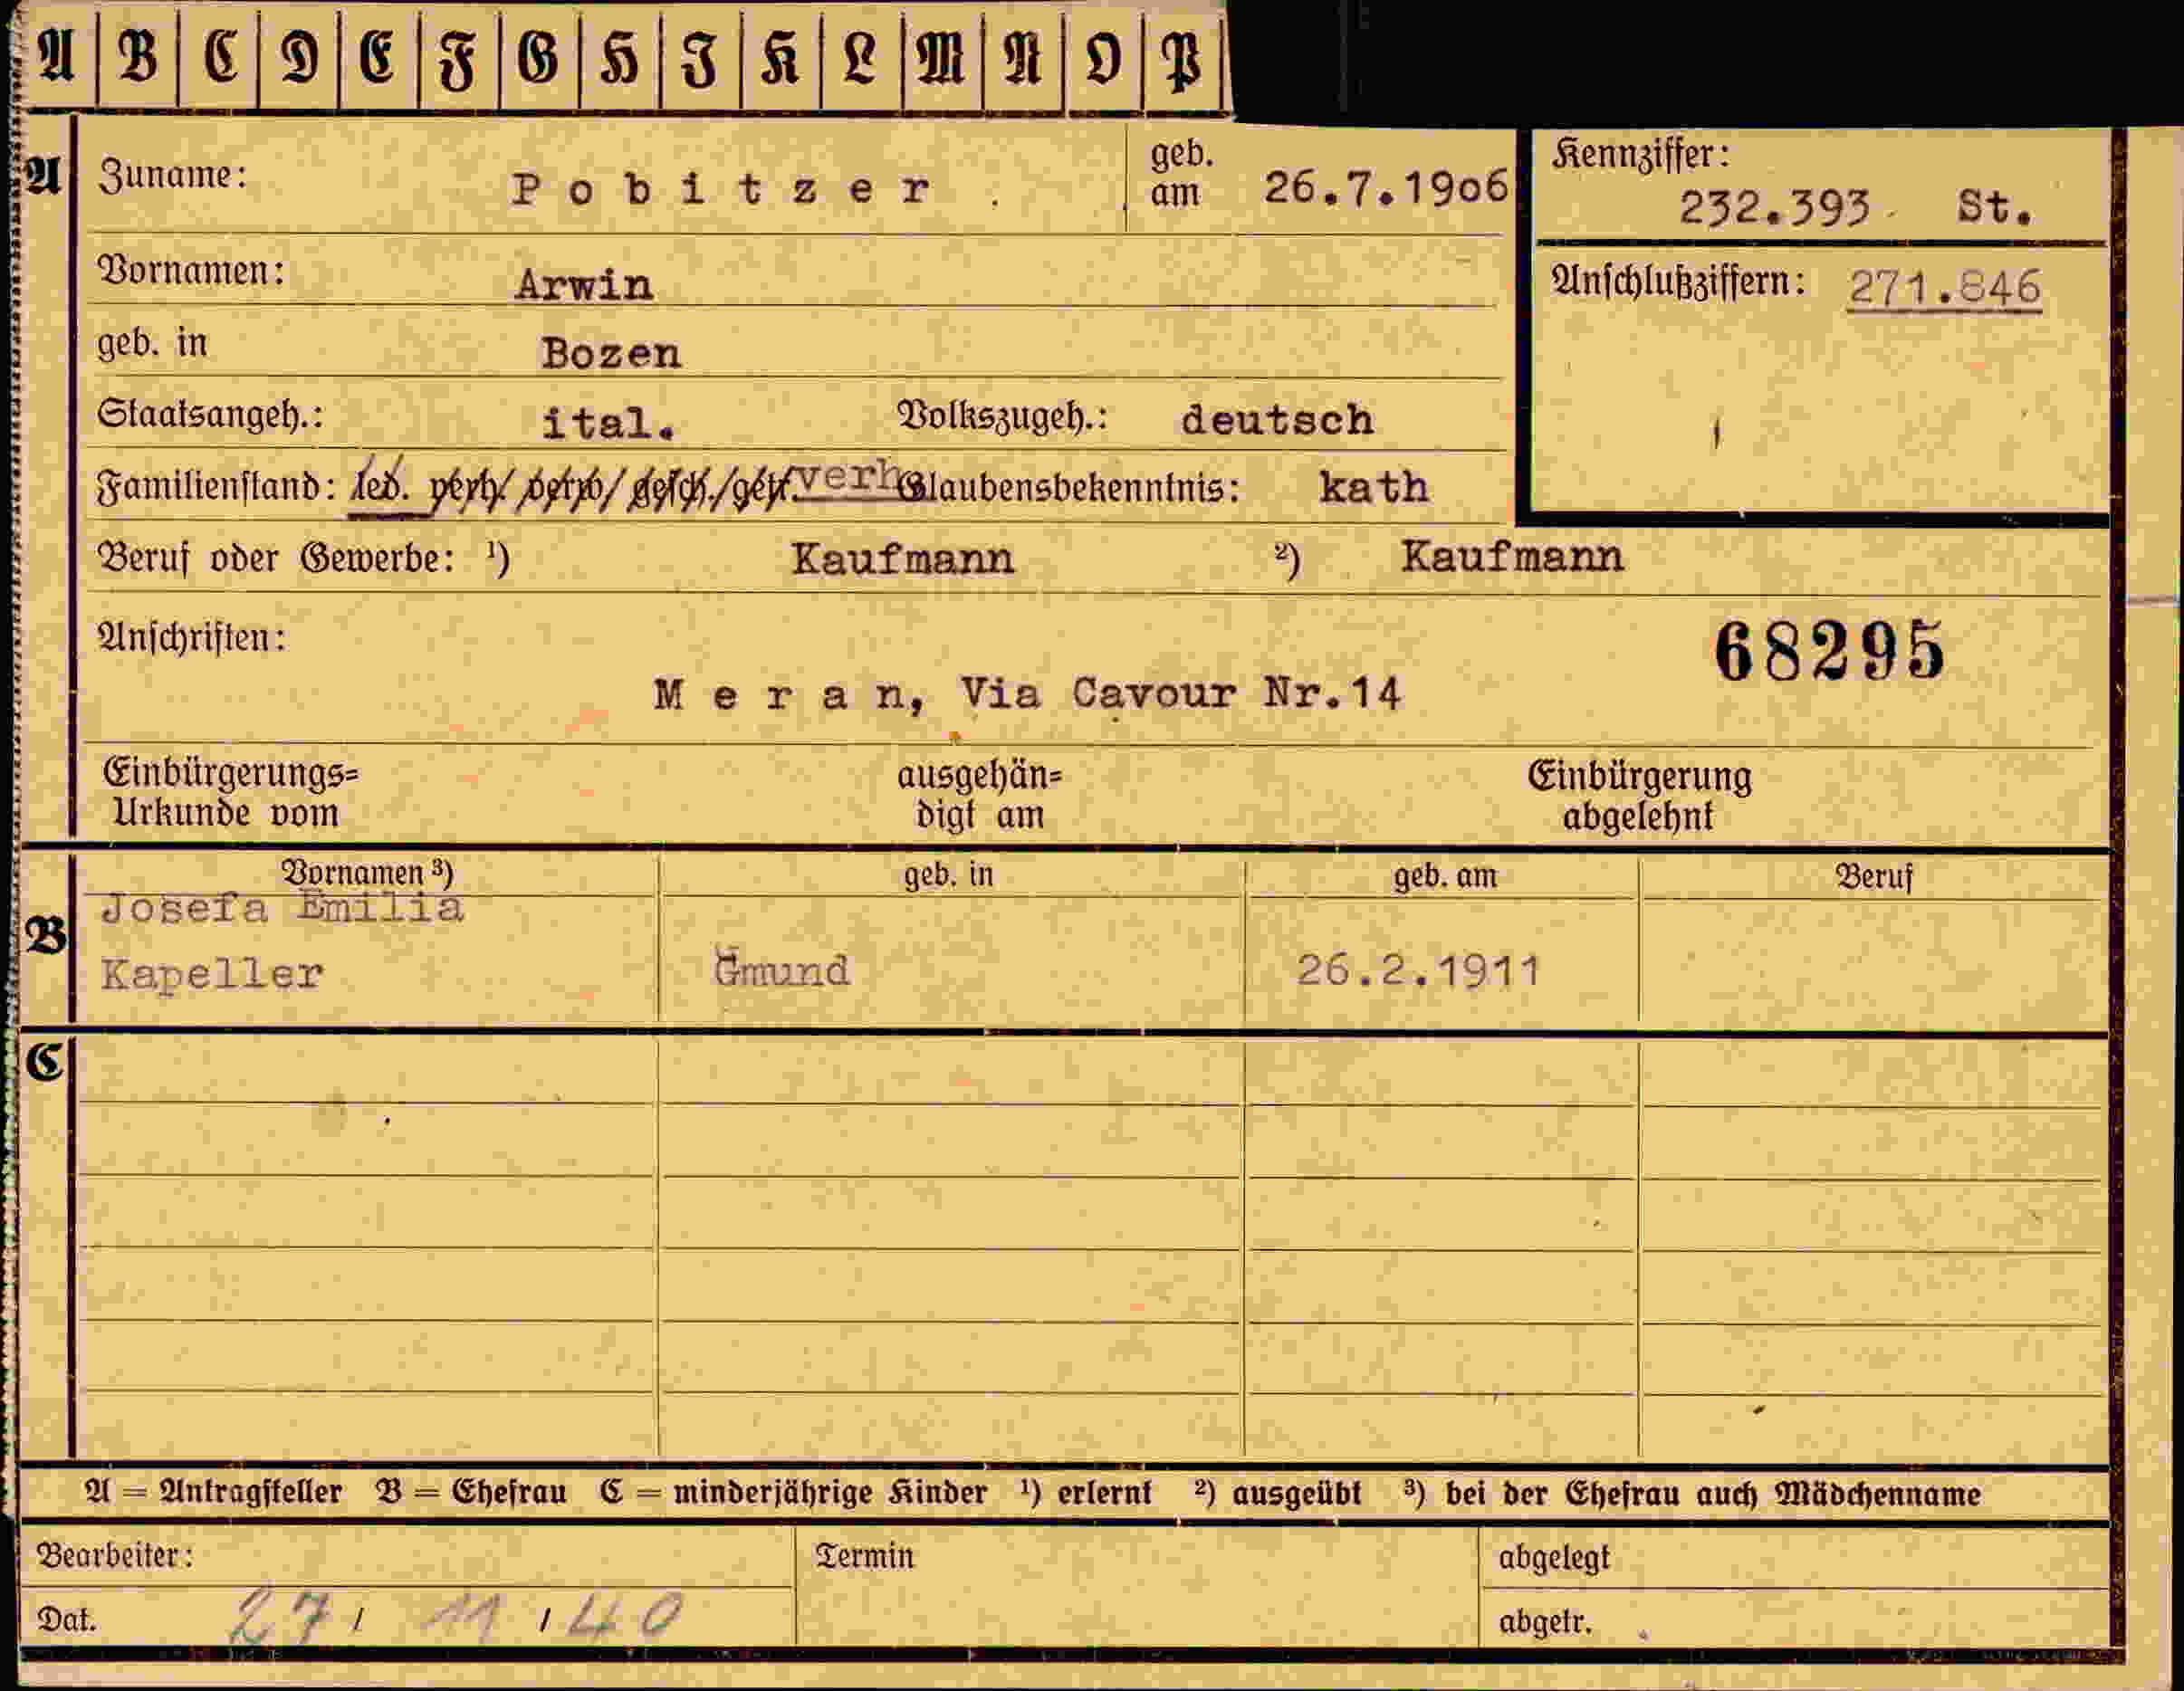 A B C D E F G H I K L M N O P
A Zuname: Pobitzer geb. am 26.7.1906
Kennziffer: 232.393 St.
Vornamen: Arwin
Anschlußziffern: 271.846
geb. in Bozen
Staatsangeh.: ital. Volkszugeh.: deutsch
Familienstand: led. verh. verw. gesch. getr. verh Glaubensbekenntnis: kath
Beruf oder Gewerbe: ¹) Kaufmann ²) Kaufmann
Anschriften: 68295
Meran, Via Cavour Nr.14
Einbürgerungs= ausgehän= Einbürgerung
Urkunde vom digt am abgelehnt
Vornamen ³) geb. in geb. am Beruf
B Josefa Emilia
Kapeller Gmund 26.2.1911
C
A = Antragsteller B = Ehefrau C = minderjährige Kinder ¹) erlernt ²) ausgeübt ³) bei der Ehefrau auch Mädchenname
Bearbeiter: Termin abgelegt
Dat. 27/ 11 /40 abgetr.